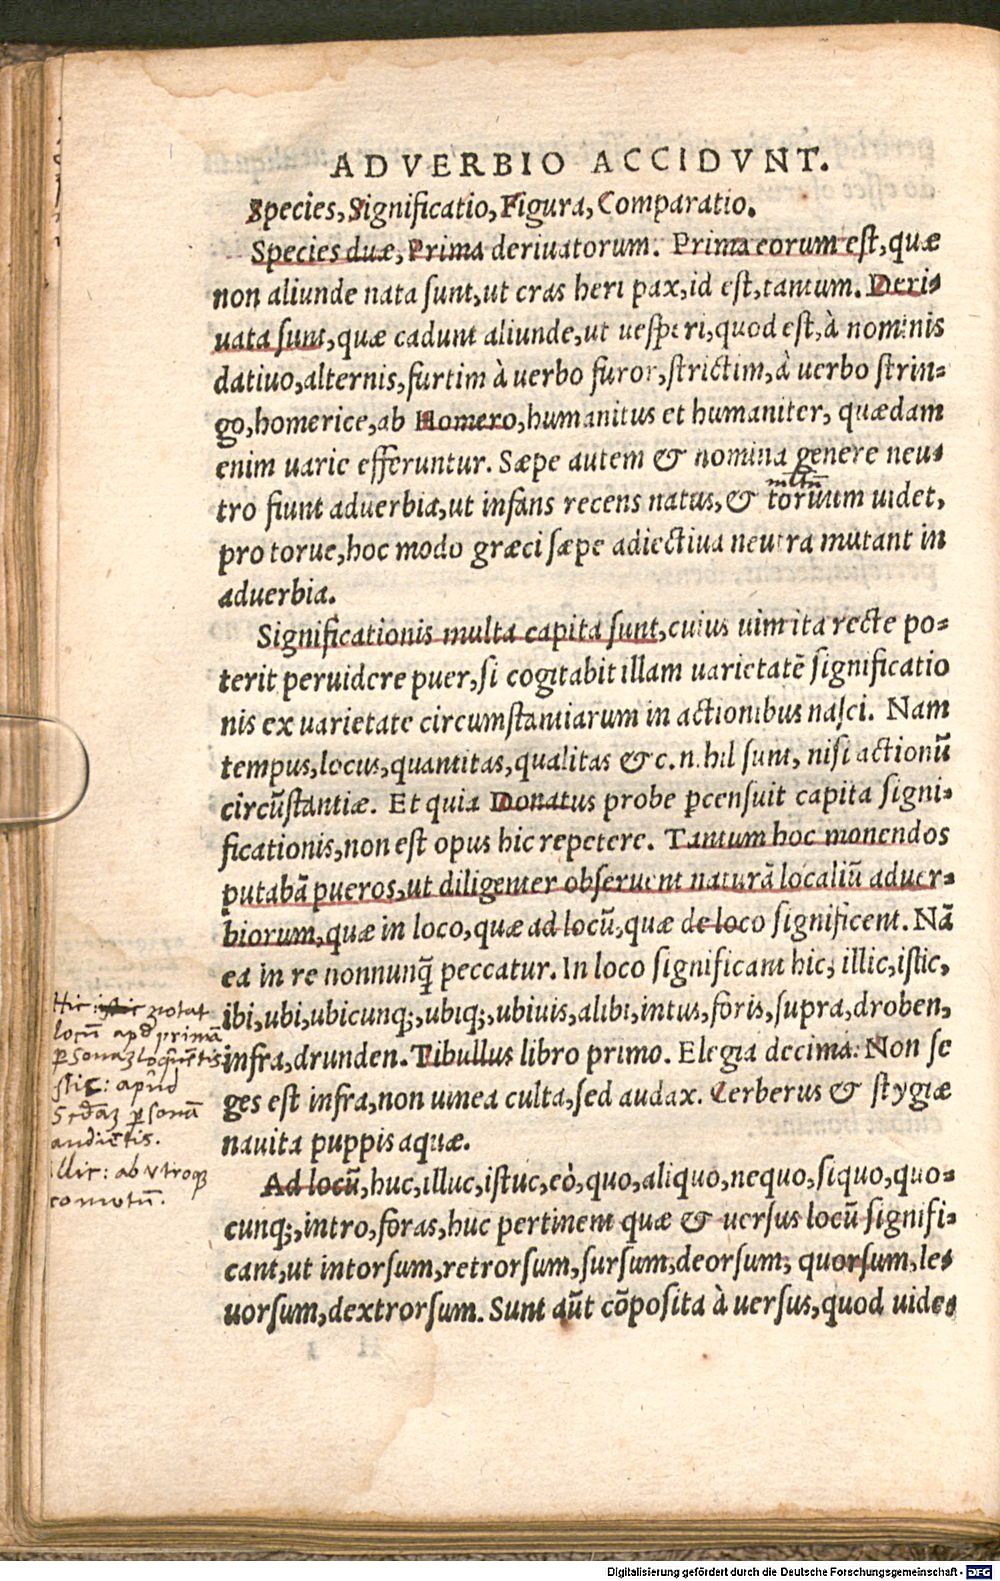 ADVERBIO ACCIDVNT.
Species, Significatio, Figura, Comparatio.
Species duæ, Prima deriuatorum. Prima eorum est, quæ
non aliunde nata sunt, ut cras heri pax, id est, tantum. Deri-
uata sunt, quæ cadunt aliunde, ut uesperi, quod est, à nominis
datiuo, alternis, furtim à uerbo furor, strictim, à uerbo strin-
go, homerice, ab Homero, humanitus et humaniter, quædam
enim uarie efferuntur. Sæpe autem & nomina genere neu-
tro fiunt aduerbia, ut infans recens natus, & toruum uidet,
pro torue, hoc modo græci sæpe adiectiua neutra mutant in
aduerbia.
Significationis multa capita sunt, cuius uim ita recte po-
terit peruidere puer, si cogitabit illam uarietatē significatio
nis ex uarietate circumstantiarum in actionibus nasci. Nam
tempus, locus, quantitas, qualitas & c. nihil sunt, nisi actionū
circūstantiæ. Et quia Donatus probe pcensuit capita signi-
ficationis, non est opus hic repetere. Tantum hoc monendos
putabā pueros, ut diligenter obseruent naturā localiū aduer-
biorum, quæ in loco, quæ ad locū, quæ de loco significent. Nā
ea in re nonnunq̄ peccatur. In loco significant hic, illic, istic,
ibi, ubi, ubicunq;, ubiq;, ubiuis, alibi, intus, foris, supra, droben,
infra, drunden. Tibullus libro primo. Elegia decima: Non se
ges est infra, non uinea culta, sed audax. Cerberus & stygiæ
nauita puppis aquæ.
Ad locū, huc, illuc, istuc, eò, quo, aliquo, nequo, siquo, quo-
cunq;, intro, foras, huc pertinent quæ & uersus locū signifi-
cant, ut intorsum, retrorsum, sursum, deorsum, quorsum, le-
uorsum, dextrorsum. Sunt aūt cōposita à uersus, quod uide-
Hic: istic notat
locū apd primā
psonaz loquētis
stic: apud
Scdaz psonā
audiētis.
llic: ab vtroq;
comotū.
Digitalisierung gefördert durch die Deutsche Forschungsgemeinschaft - DFG